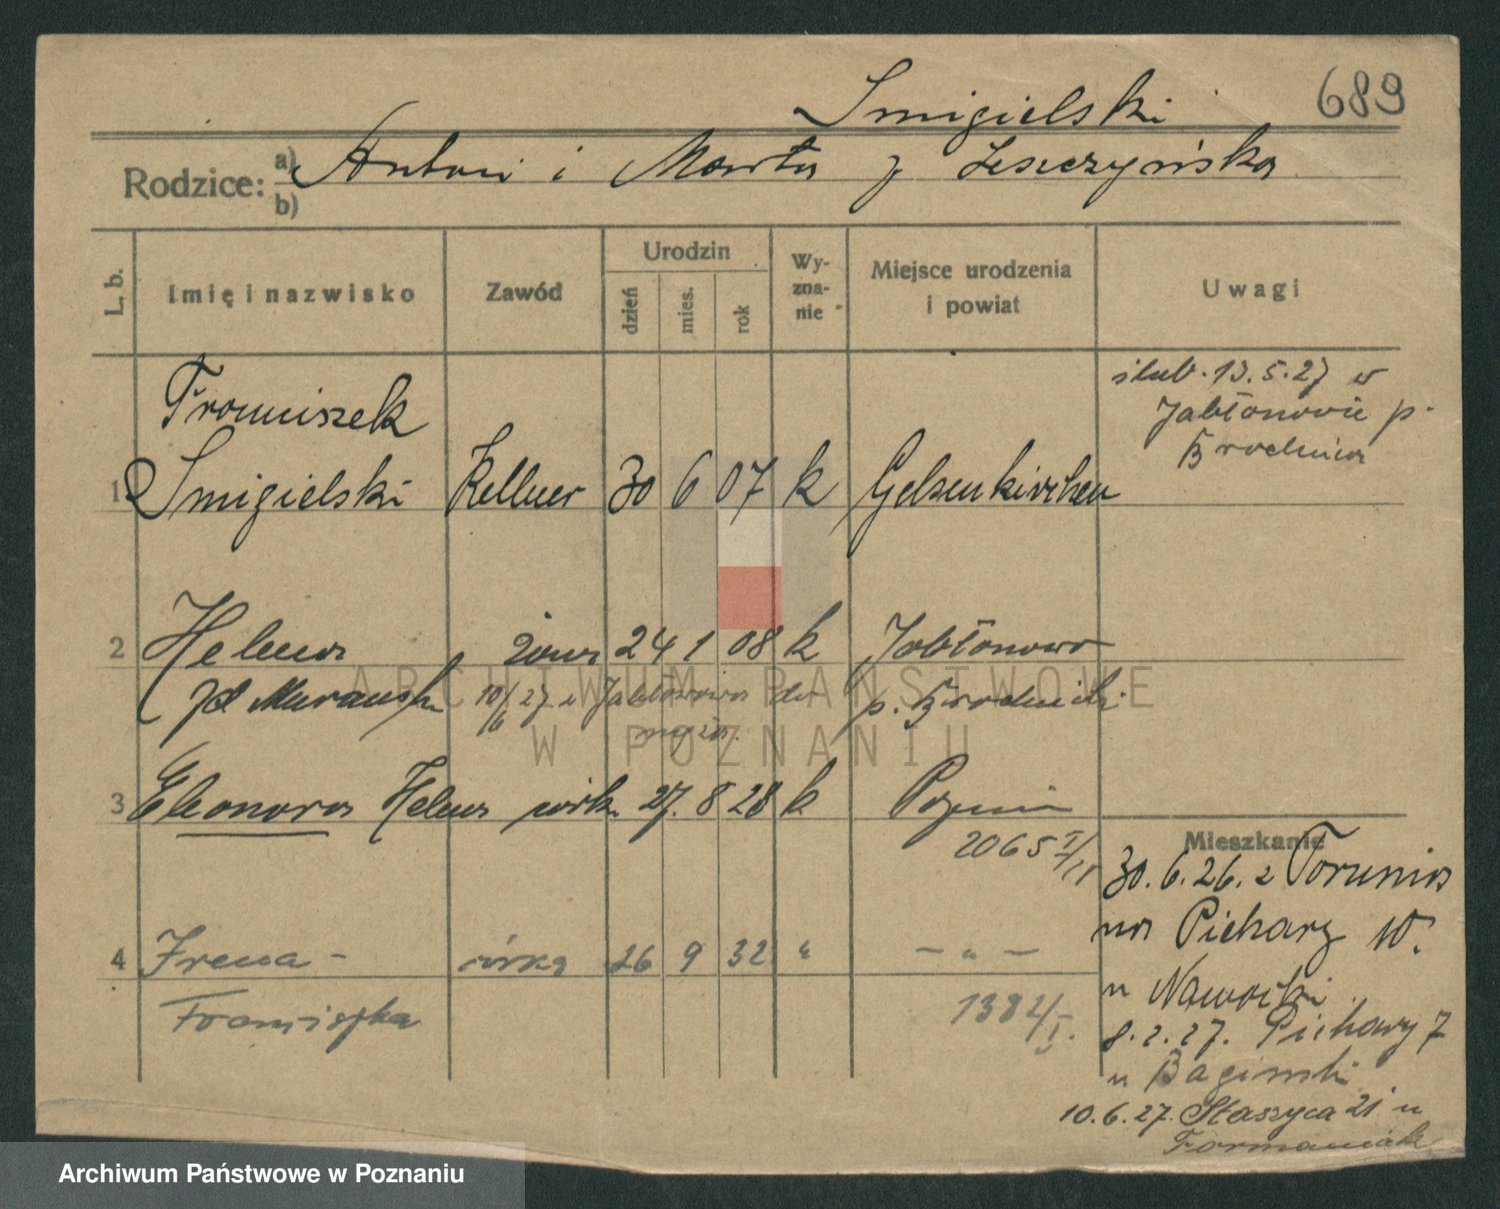 689
Smigielski
Rodzice: a) Antoni i Marta z Leszczyńska
b)
L. b. Imię i nazwisko Zawód Urodzin dzień mies. rok Wyznanie Miejsce urodzenia i powiat Uwagi
ślub. 13.5.27 w
Jabłonowie p.
Brodnica
Franciszek
1 Smigielski Kellner 30 6 07 k Gelsenkirchen
2 Helena żona 24 1 08 k Jabłonowo
zd Murawsk 10/6 27 z Jabłonowa do p. Brodnicki
męża.
3 Eleonora Helena córk 27. 8 28 k Poznań
2065
Mieszkanie
30.6.26. z Torunia
na Piekary 10.
4 Irena - córka 26 9 32 " - " -
u Nawocki
Franciszka 1382/I.
8.2.27. Piekary 7
u Bagiński
10.6.27. Staszyca 21 u
Furmaniak
ARCHIWUM PAŃSTWOWE
W POZNANIU
Archiwum Państwowe w Poznaniu